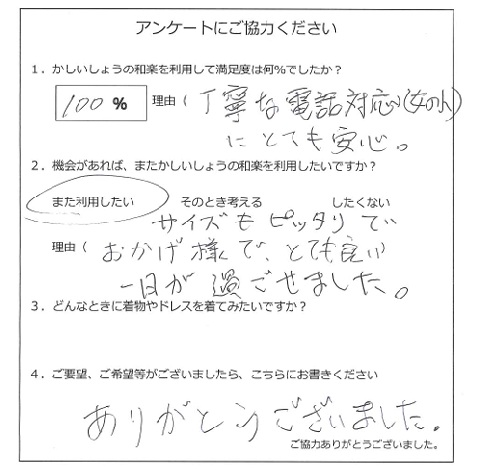 アンケートにご協力ください
1．かしいしょうの和楽を利用して満足度は何%でしたか？
100 % 理由（ 丁寧な電話対応（女の人）
にとても安心。
2．機会があれば、またかしいしょうの和楽を利用したいですか？
また利用したい そのとき考える したくない
サイズもピッタリで
理由（ おかげ様で、とても良い
一日が過ごせました。
3．どんなときに着物やドレスを着てみたいですか？
4．ご要望、ご希望等がございましたら、こちらにお書きください
ありがとうございました。
ご協力ありがとうございました。